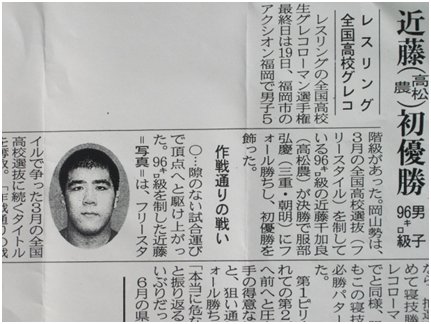 近藤(高松農)初優勝
男子
96㌔級
レスリング
全国高校グレコ
レスリングの全国高校
生グレコローマン選手権
最終日は19日、福岡市の
アクシオン福岡で男子5
階級があった。岡山勢は、
3月の全国高校選抜(フ
リースタイル)を制して
いる96㌔級の近藤千加良
(高松農)が決勝で服部
弘慶(三重・朝明)にフ
ォール勝ちし、初優勝を
飾った。
作戦通りの戦い
〇…隙のない試合運び
で頂点へと駆け上がっ
た。96㌔級を制した近藤
=写真=は、フリースタ
イルで争った3月の全国
高校選抜に続くタイトル
を奪取。「作戦通りの戦
なら、
めて寝技勝
レコローマン
でと同様、
もこの寝技
必勝パター
た。
第1ピリ
れての第2
前へと圧
手の得意な
と、狙い通
ォール勝ち
「本当に危な
と振り返る
いぶりだっ
6月の県